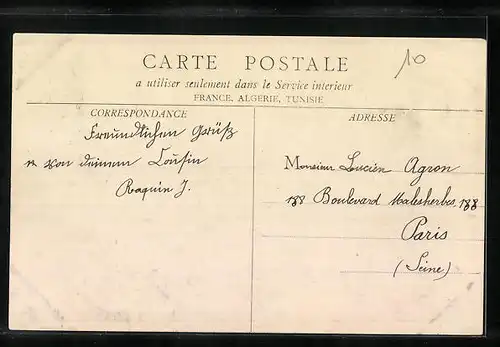 10
CARTE POSTALE
a utiliser seulement dans le Service interieur
FRANCE, ALGERIE, TUNISIE
CORRESPONDANCE
Freundlichen Grüß
von deinem Cousin
Raquin J.
ADRESSE
Monsieur Lucien Agron
188 Boulevard Malesherbes, 188
Paris
(Seine)